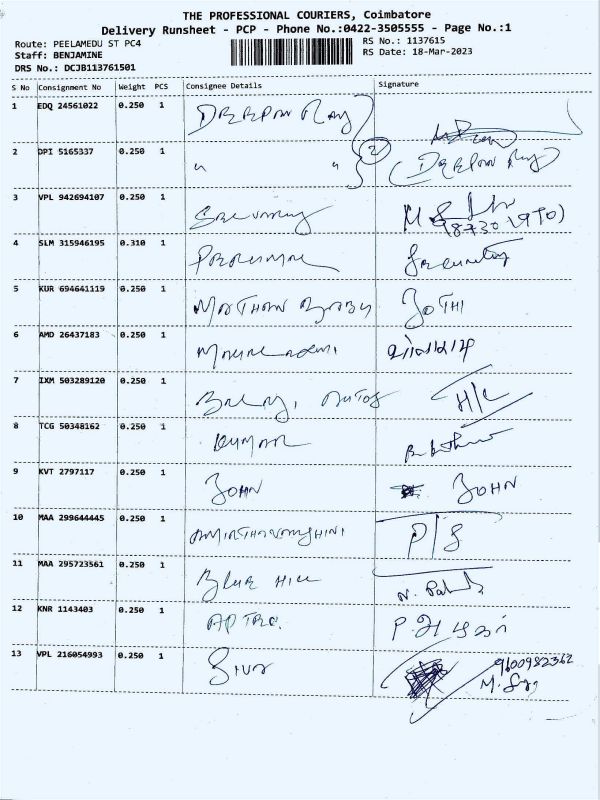 THE PROFESSIONAL COURIERS, Coimbatore
Delivery Runsheet - PCP - Phone No.:0422-3505555 - Page No.:1
Route: PEELAMEDU ST PC4
RS No.: 1137615
Staff: BENJAMINE
RS Date: 18-Mar-2023
DRS No.: DCJB113761501
S No Consignment No Weight PCS Consignee Details Signature
1 EDQ 24561022 0.250 1
2 DPI 5165337 0.250 1 " " 2
3 VPL 942694107 0.250 1
4 SLM 315946195 0.310 1 Security
5 KUR 694641119 0.250 1 JOTHI
6 AMD 26437183 0.250 1
7 IXM 503289120 0.250 1 AUTOS H/L
8 TCG 50348162 0.250 1 KUMAR
9 KVT 2797117 0.250 1 JOHN JOHN
10 MAA 299644445 0.250 1 AMIRTHAVARSHINI P/S
11 MAA 295723561 0.250 1 BLUE HILL
12 KNR 1143403 0.250 1
13 VPL 216054993 0.250 1 SIVA 9600982362